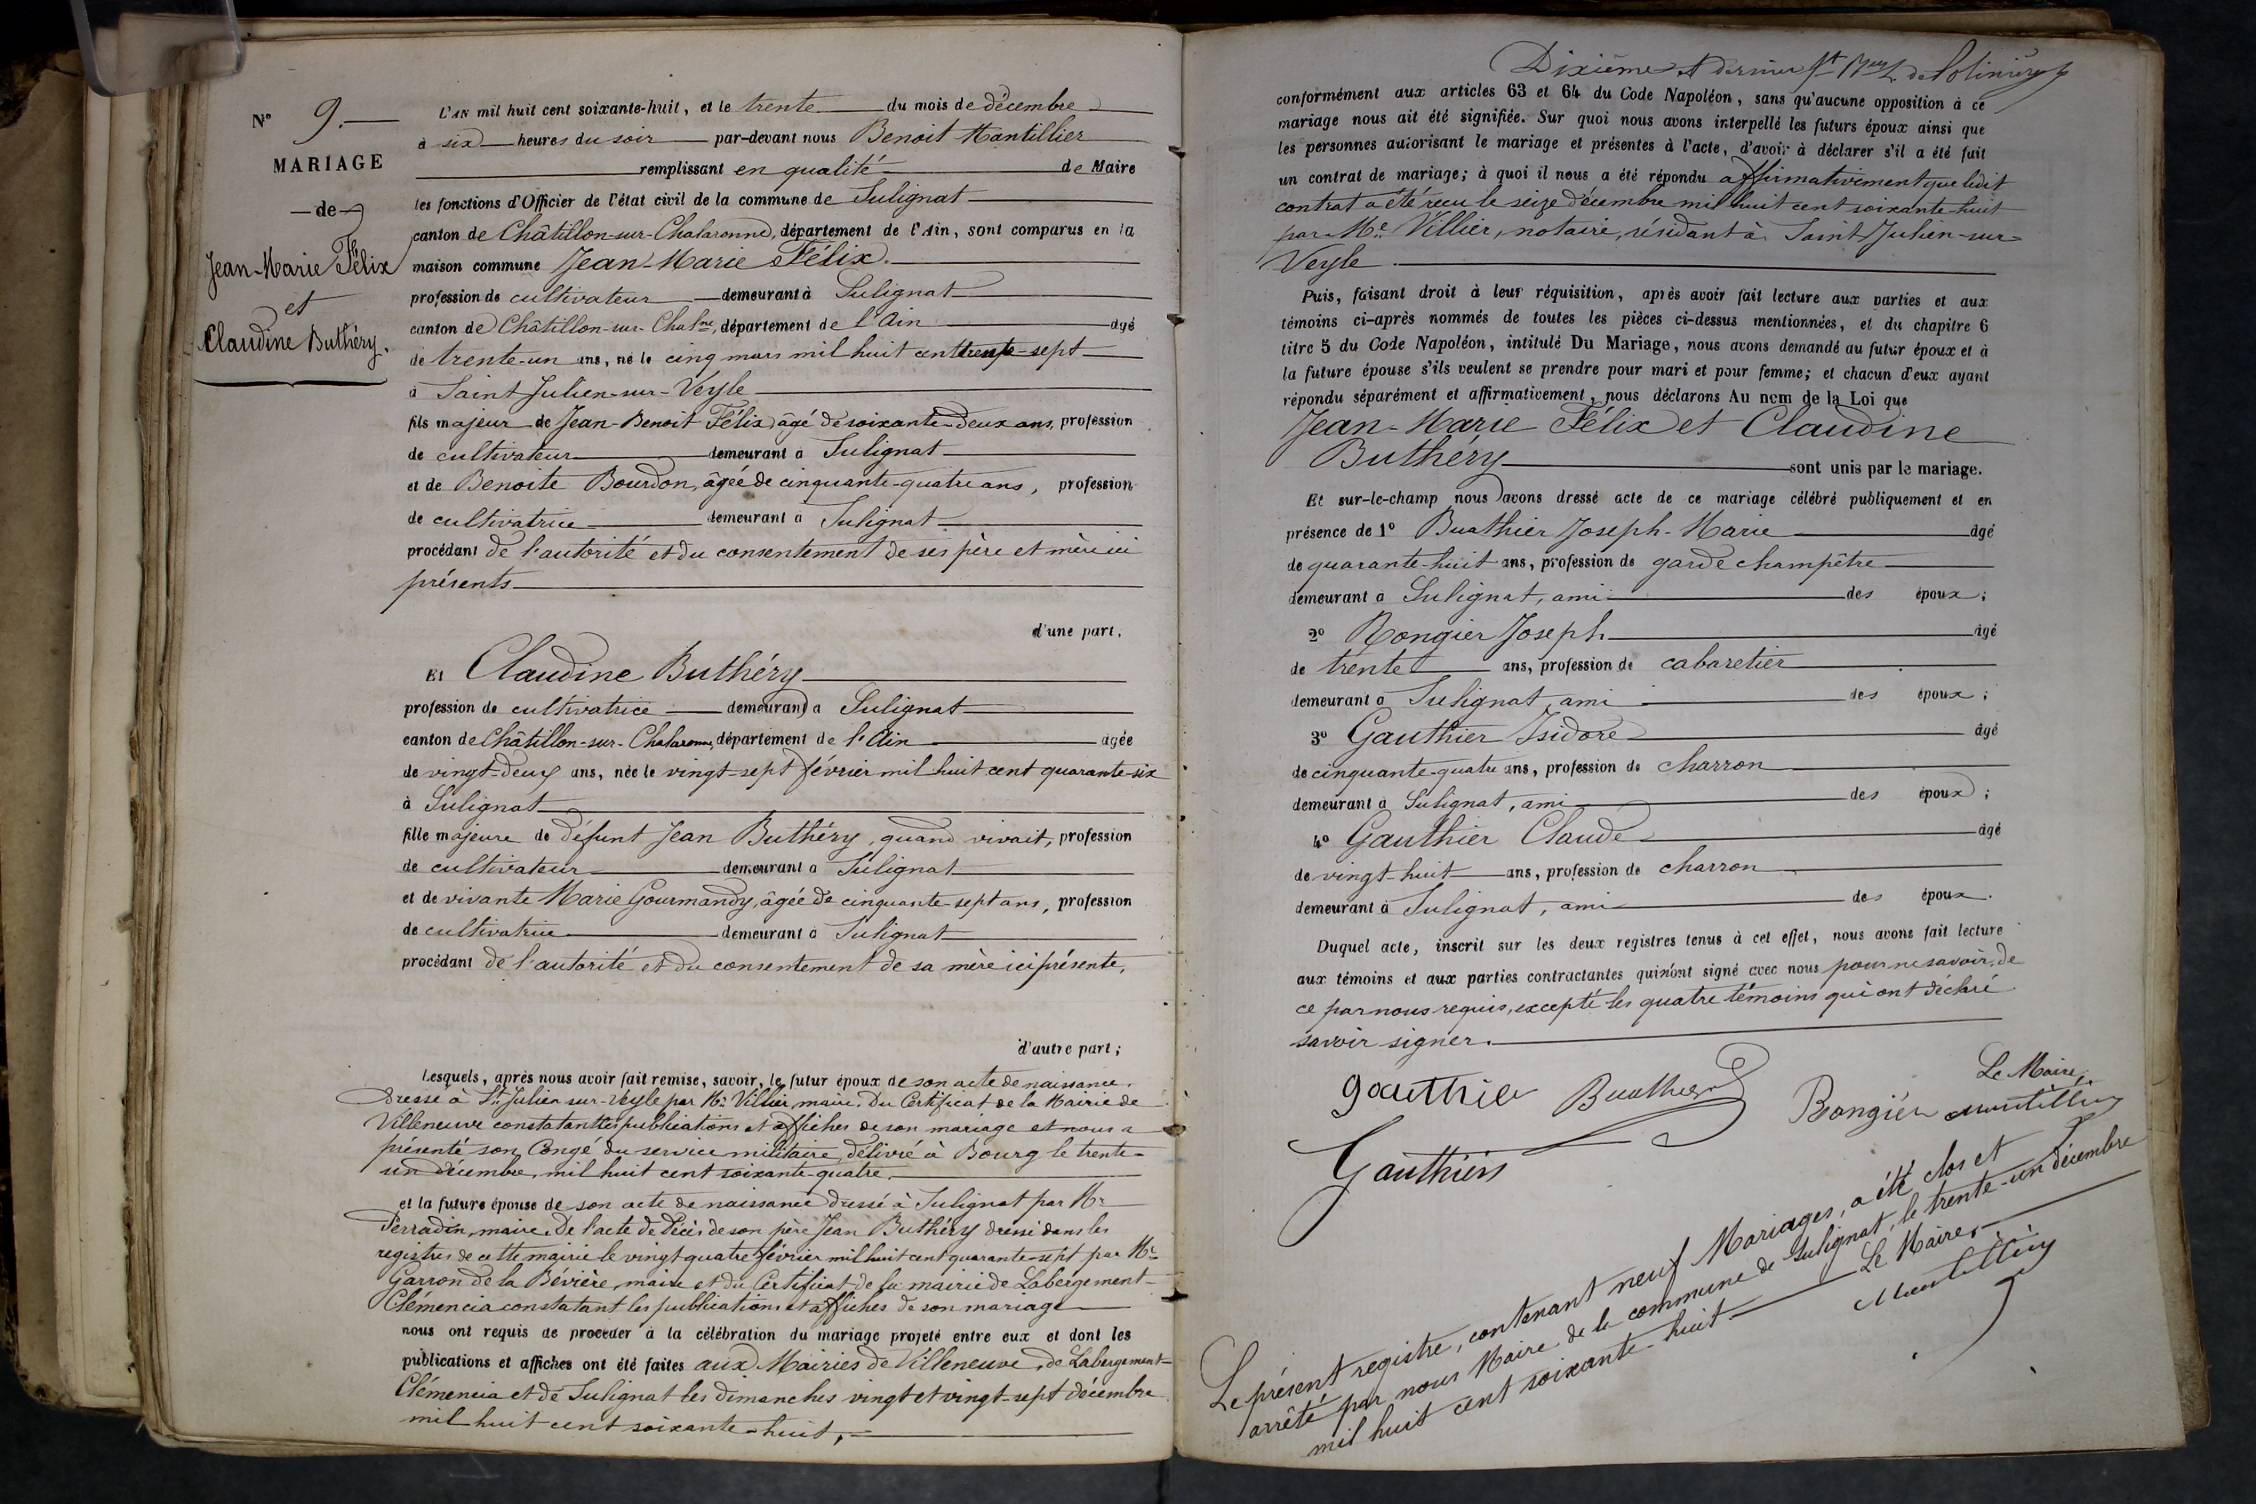 N° 9.
MARIAGE
de
Jean-Marie Félix
et
Claudine Buthéry.
L'AN mil huit cent soixante-huit, et le trente du mois de décembre
à six heures du soir par-devant nous Benoit Mantillier
remplissant en qualité de Maire
les fonctions d'Officier de l'état civil de la commune de Sulignat
canton de Châtillon-sur-Chalaronne, département de l'Ain, sont comparus en la
maison commune Jean-Marie Félix.
profession de cultivateur demeurant à Sulignat
canton de Châtillon-sur-Chalne, département de l'Ain âgé
de trente-un ans, né le cinq mars mil huit cent trente-sept
à Saint Julien-sur-Veyle
fils majeur de Jean-Benoit Félix âgé de soixante-deux ans, profession
de cultivateur demeurant à Sulignat
et de Benoite Bourdon, âgée de cinquante-quatre ans, profession
de cultivatrice demeurant à Sulignat
procédant de l'autorité et du consentement de ses père et mère ici
présents
d'une part,
Et Claudine Buthéry
profession de cultivatrice demeurand a Sulignat
canton de Châtillon-sur-Chalaronne, département de l'Ain âgée
de vingt-deux ans, née le vingt-sept février mil huit cent quarante-six
à Sulignat
fille majeure de défunt Jean Buthéry, quand vivait, profession
de cultivateur demeurant à Sulignat
et de vivante Marie Gourmandy, âgée de cinquante-sept ans, profession
de cultivatrice demeurant à Sulignat
procédant de l'autorité et du consentement de sa mère ici présente,
d'autre part;
Lesquels, après nous avoir fait remise, savoir, le futur époux de son acte de naissance,
dressé à St Julien-sur-Veyle par Mr Villier, maire, Du Certificat de la Mairie de
Villeneuve constatant les publications et affiches de son mariage et nous a
présenté son Congé du service militaire, délivré à Bourg le trente-
un décembre, mil huit cent soixante-quatre.
et la future épouse de son acte de naissance dressé à Sulignat par Mr
Perradin, maire, De l'acte de Décès de son père Jean Buthéry dressé dans les
registres de cette mairie le vingt quatre février mil huit cent quarante-sept par Mr
Garron de la Bévière, maire et du Certificat de la mairie de Labergement-
Clémencia constatant les publications et affiches de son mariage
nous ont requis de procéder à la célébration du mariage projeté entre eux et dont les
publications et affiches ont été faites aux Mairies de Villeneuve, de Labergement-
Clémencia et de Sulignat les dimanches vingt et vingt-sept décembre
mil huit cent soixante-huit.
Dixième et dernier
conformément aux articles 63 et 64 du Code Napoléon, sans qu'aucune opposition à ce
mariage nous ait été signifiée. Sur quoi nous avons interpellé les futurs époux ainsi que
les personnes autorisant le mariage et présentes à l'acte, d'avoir à déclarer s'il a été fait
un contrat de mariage; à quoi il nous a été répondu affirmativement que ledit
contrat a été reçu le seize décembre mil huit cent soixante-huit
par Me Villier, notaire, résidant à Saint Julien-sur-
Veyle.
Puis, faisant droit à leur réquisition, après avoir fait lecture aux parties et aux
témoins ci-après nommés de toutes les pièces ci-dessus mentionnées, et du chapitre 6
titre 5 du Code Napoléon, intitulé Du Mariage, nous avons demandé au futur époux et à
la future épouse s'ils veulent se prendre pour mari et pour femme; et chacun d'eux ayant
répondu séparément et affirmativement, nous déclarons Au nom de la Loi que
Jean-Marie Félix et Claudine
Buthéry sont unis par le mariage.
Et sur-le-champ nous avons dressé acte de ce mariage célébré publiquement et en
présence de 1° Buathier Joseph-Marie âgé
de quarante-huit ans, profession de garde champêtre
demeurant à Sulignat, ami des époux;
2° Rongier Joseph âgé
de trente ans, profession de cabaretier
demeurant à Sulignat, ami des époux;
3° Gauthier Isidore âgé
de cinquante-quatre ans, profession de charron
demeurant à Sulignat, ami des époux;
4° Gauthier Claude âgé
de vingt-huit ans, profession de charron
demeurant à Sulignat, ami des époux.
Duquel acte, inscrit sur les deux registres tenus à cet effet, nous avons fait lecture
aux témoins et aux parties contractantes qui n'ont signé avec nous pour ne savoir, de
ce par nous requis, excepté les quatre témoins qui ont déclaré
savoir signer.
Le Maire,
gauthier Buathier Rongier Mantillier
Gauthier
Le présent registre, contenant neuf Mariages, a été clos et
arrêté par nous Maire de la commune de Sulignat, le trente-un décembre
mil huit cent soixante-huit Le Maire,
Mantillier